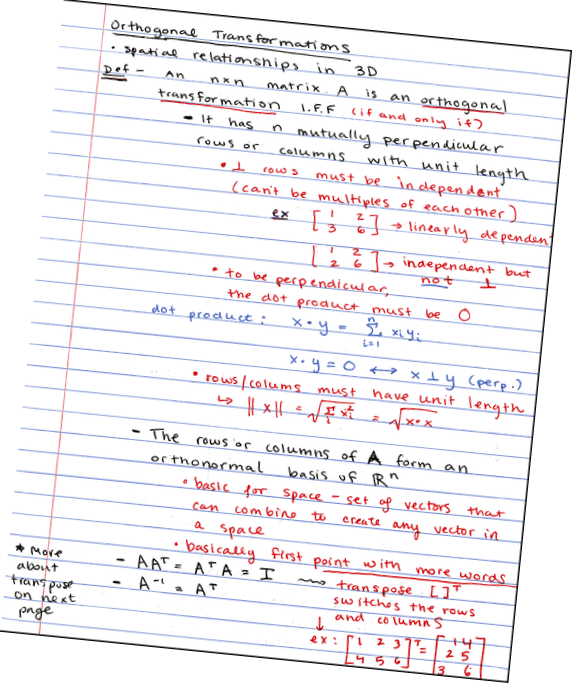 Orthogonal Transformations
• spatial relationships in 3D
Def - An n×n matrix A is an orthogonal
transformation I.F.F (if and only if)
- It has n mutually perpendicular
rows or columns with unit length
• ⊥ rows must be independent
(can't be multiples of each other)
ex [1 2 / 3 6] → linearly dependent
[1 2 / 2 6] → independent but
not ⊥
• to be perpendicular,
the dot product must be 0
dot product: x • y = Σ_{i=1}^{n} x_i y_i
x • y = 0 ↔ x ⊥ y (perp.)
• rows/colums must have unit length
↳ ||x|| = √(Σ_i^n x_i^2) = √(x•x)
- The rows or columns of A form an
orthonormal basis of ℝ^n
• basic for space - set of vectors that
can combine to create any vector in
a space
• basically first point with more words
- AA^T = A^T A = I ⇝ transpose [ ]^T
- A^-1 = A^T
switches the rows
and columns
↓
ex: [1 2 3 / 4 5 6]^T = [1 4 / 2 5 / 3 6]
* More
about
transpose
on next
page